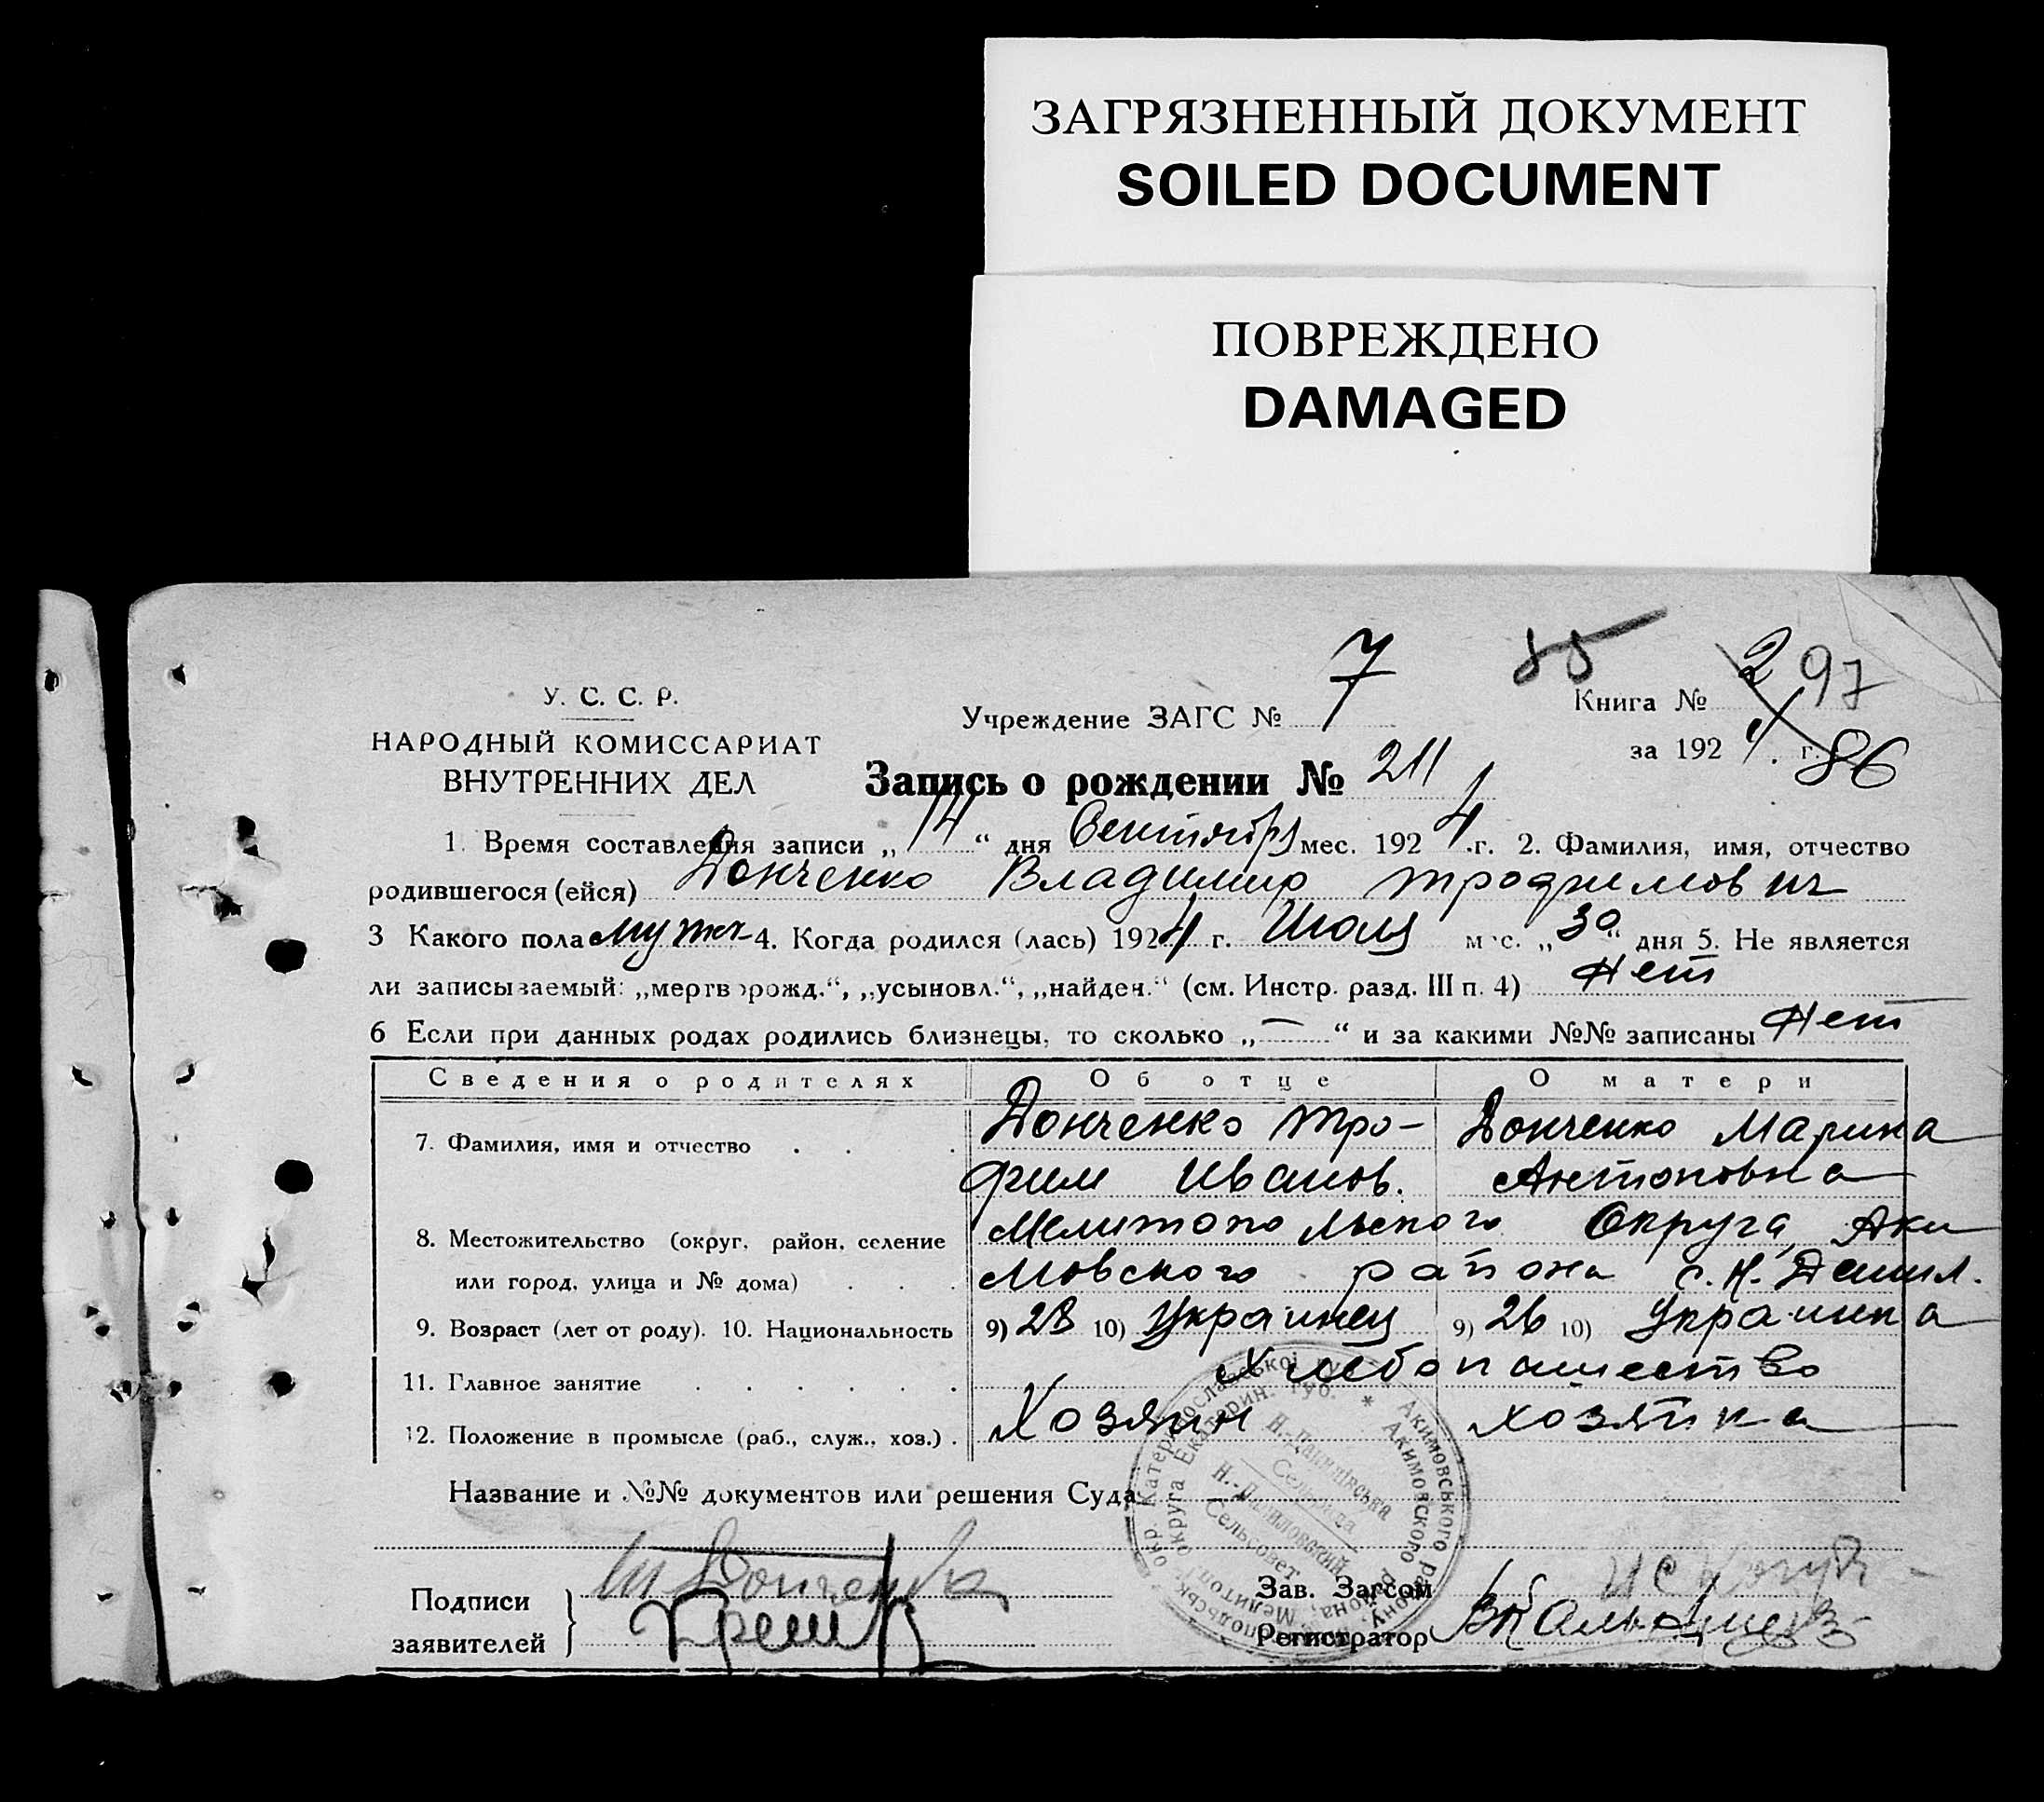 ЗАГРЯЗНЕННЫЙ ДОКУМЕНТ
SOILED DOCUMENT
ПОВРЕЖДЕНО
DAMAGED
У. С. С. Р.
НАРОДНЫЙ КОМИССАРИАТ
ВНУТРЕННИХ ДЕЛ
Учреждение ЗАГС № 7
85
Книга № 2 97
за 1924 г. 86
Запись о рождении № 211
1. Время составления записи „14“ дня Сентября мес. 1924 г. 2. Фамилия, имя, отчество
родившегося (ейся) Донченко Владимир Трофимович
3 Какого пола мужч 4. Когда родился (лась) 1924 г. Июля мес. „30“ дня 5. Не является
ли записываемый: „мертворожд.“, „усыновл.“, „найден.“ (см. Инстр. разд. III п. 4) Нет
6 Если при данных родах родились близнецы, то сколько „—“ и за какими №№ записаны Нет
Сведения о родителях Об отце О матери
7. Фамилия, имя и отчество . . . Донченко Тро- Донченко Марина
фим Иванов. Антоновна
8. Местожительство (округ, район, селение Мелитопольского Округа, Аки
или город, улица и № дома) . . . мовского района с. Н. Данил.
9. Возраст (лет от роду). 10. Национальность 9) 28 10) Украинец 9) 26 10) Украинка
11. Главное занятие . . . . . . Хлебопашество
12. Положение в промысле (раб., служ., хоз.) . Хозяин хозяйка
Название и №№ документов или решения Суда
окр. Катеринославської губ. * Акимовського району, Мелитопольськ
округа Екатерин. губ. * Акимовского района, Мелитоп
Н.-Данилівська
Сельрада
Н.-Даниловский
Сельсовет
Подписи
заявителей
Донченко
Зав. Загсом
Регистратор